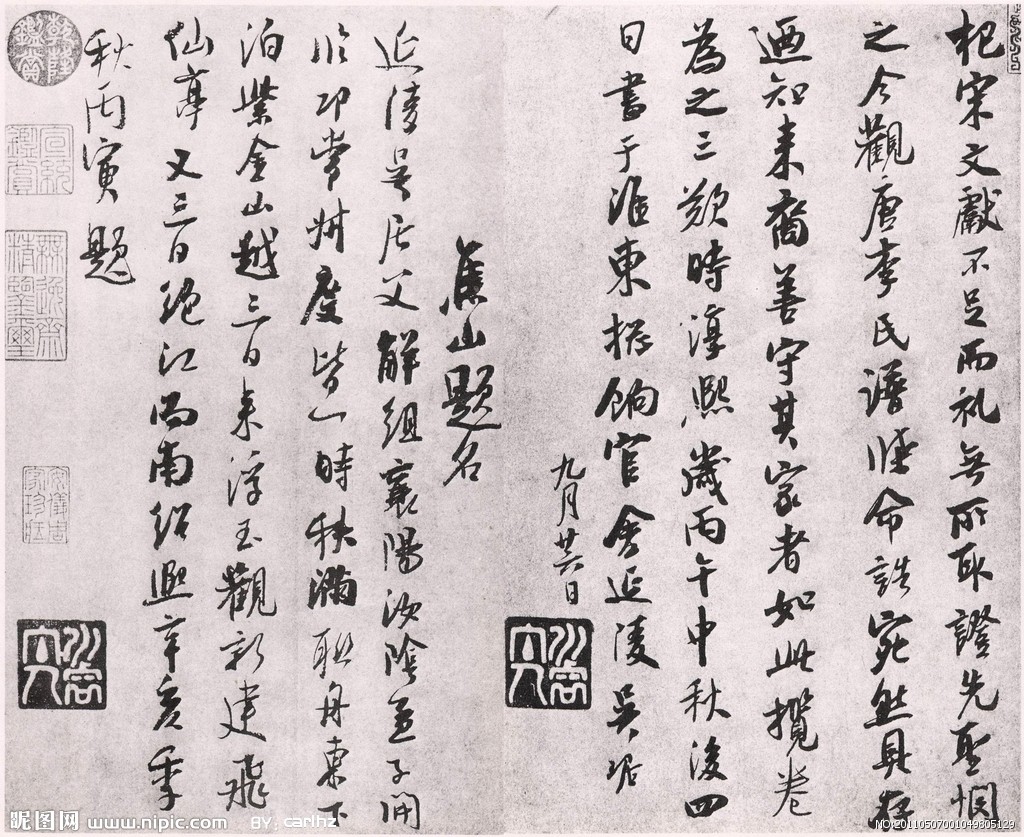 杞宋文獻不足而礼無所取證先聖憫
之今觀唐李氏譜牒命誥宛然具存
迺知來裔善守其家者如此攬卷
為之三歎時淳熙歲丙午中秋後四
日書于淮東總餉官舍延陵吳琚
九月廿六日
焦山題名
延陵吳居父解組襄陽汝陰孟子開
臨邛常叔度皆一時秩滿聯舟東下
泊紫金山越三日來浮玉觀新建飛
仙亭又三日絕江而南紹熙辛亥季
秋丙寅題
乾隆鑑賞
宣統鑑賞
無逸齋精鑒璽
安儀周家珍藏
昵图网 www.nipic.com BY: carlhz
NO:20110507001049805129